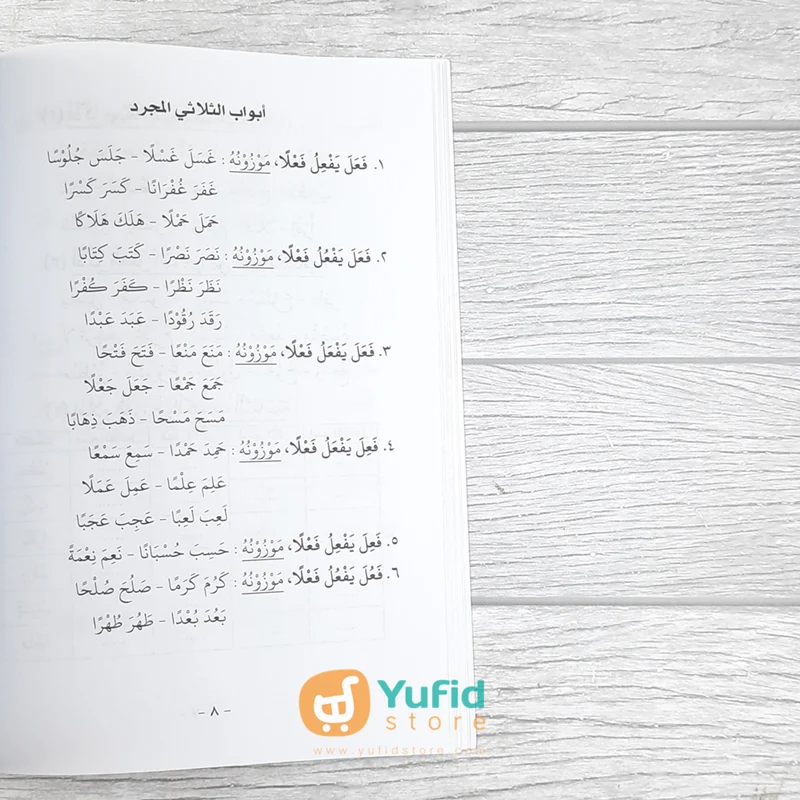 أبواب الثلاثي المجرد
١. فَعَلَ يَفْعِلُ فَعْلًا، مَوْزُوْنُهُ : غَسَلَ غَسْلًا - جَلَسَ جُلُوْسًا
غَفَرَ غُفْرَانًا - كَسَرَ كَسْرًا
حَمَلَ حَمْلًا - هَلَكَ هَلَاكًا
٢. فَعَلَ يَفْعُلُ فَعْلًا، مَوْزُوْنُهُ : نَصَرَ نَصْرًا - كَتَبَ كِتَابًا
نَظَرَ نَظْرًا - كَفَرَ كُفْرًا
رَقَدَ رُقُوْدًا - عَبَدَ عَبْدًا
٣. فَعَلَ يَفْعَلُ فَعْلًا، مَوْزُوْنُهُ : مَنَعَ مَنْعًا - فَتَحَ فَتْحًا
جَمَعَ جَمْعًا - جَعَلَ جَعْلًا
مَسَحَ مَسْحًا - ذَهَبَ ذِهَابًا
٤. فَعِلَ يَفْعَلُ فَعْلًا، مَوْزُوْنُهُ : حَمِدَ حَمْدًا - سَمِعَ سَمْعًا
عَلِمَ عِلْمًا - عَمِلَ عَمَلًا
لَعِبَ لَعِبًا - عَجِبَ عَجَبًا
٥. فَعِلَ يَفْعِلُ فَعْلًا، مَوْزُوْنُهُ : حَسِبَ حُسْبَانًا - نَعِمَ نِعْمَةً
٦. فَعُلَ يَفْعُلُ فَعْلًا، مَوْزُوْنُهُ : كَرُمَ كَرَمًا - صَلُحَ صُلْحًا
بَعُدَ بُعْدًا - طَهُرَ طُهْرًا
- ٨ -
Yufid
store
www.yufidstore.com